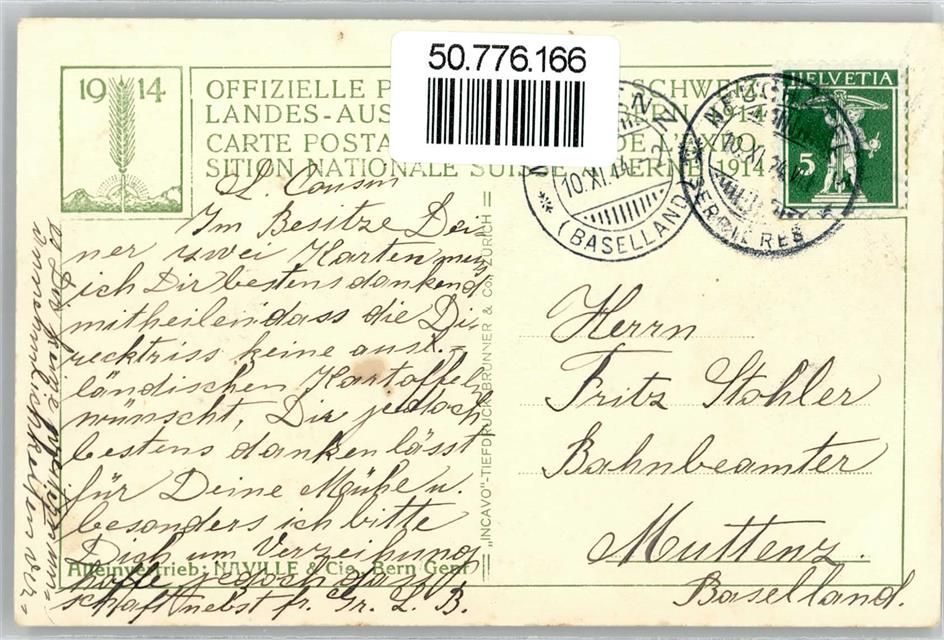 50.776.166
1914
OFFIZIELLE P SCHWEIZ.
LANDES-AUS BERN 1914
CARTE POSTA DE L'EXPO
SITION NATIONALE SUISSE BERNE 1914
HELVETIA
5
10.XI.14
(BASELLAND)
NEUCHATEL
10.XI.14
SERRIERES
L. Cousin
Im Besitze Dei
ner zwei Karten muss
ich Dir bestens dankend
mitheilen dass die Di
recktriss keine aus
ländischen Kartoffel
wünscht, Dir jedoch
bestens danken lässt
für Deine Mühe u.
besonders ich bitte
Dich um Verzeihung
hoffe jedoch dass
schaft nebst fr. Gr. L. B.
Alleinvertrieb: NAVILLE & Cie., Bern Genf
„INCAVO"-TIEFDRUCK BRUNNER & Co., ZÜRICH
Herrn
Fritz Stohler
Bahnbeamter
Muttenz.
Baselland.